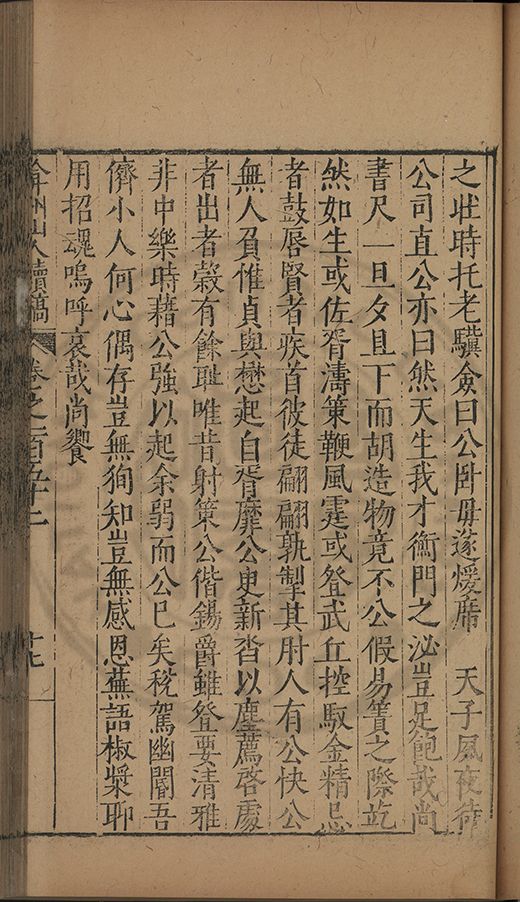 之壯時托老驥僉曰公卧毋遂煖席　天子夙夜待
公司直公亦曰然天生我才衡門之泌豈足飽哉尚
書尺一旦夕且下而胡造物竟不公假易簀之際屹
然如生或佐胥濤策鞭風霆或登武丘控馭金精忌
者鼓唇賢者疾首彼徒翩翩孰掣其肘人有公快公
無人負惟貞與懋起自胥靡公新沓以塵薦啓處
者出者穀有餘耻唯昔射策公偕錫爵雖登要清雅
非中樂時藉公強以起余弱而公已矣稅駕幽閽吾
儕小人何心偶存豈無狥知豈無感恩蕪語椒漿聊
用招魂嗚呼哀哉尚饗
弇州山人續稿　卷之一百五十二　十七